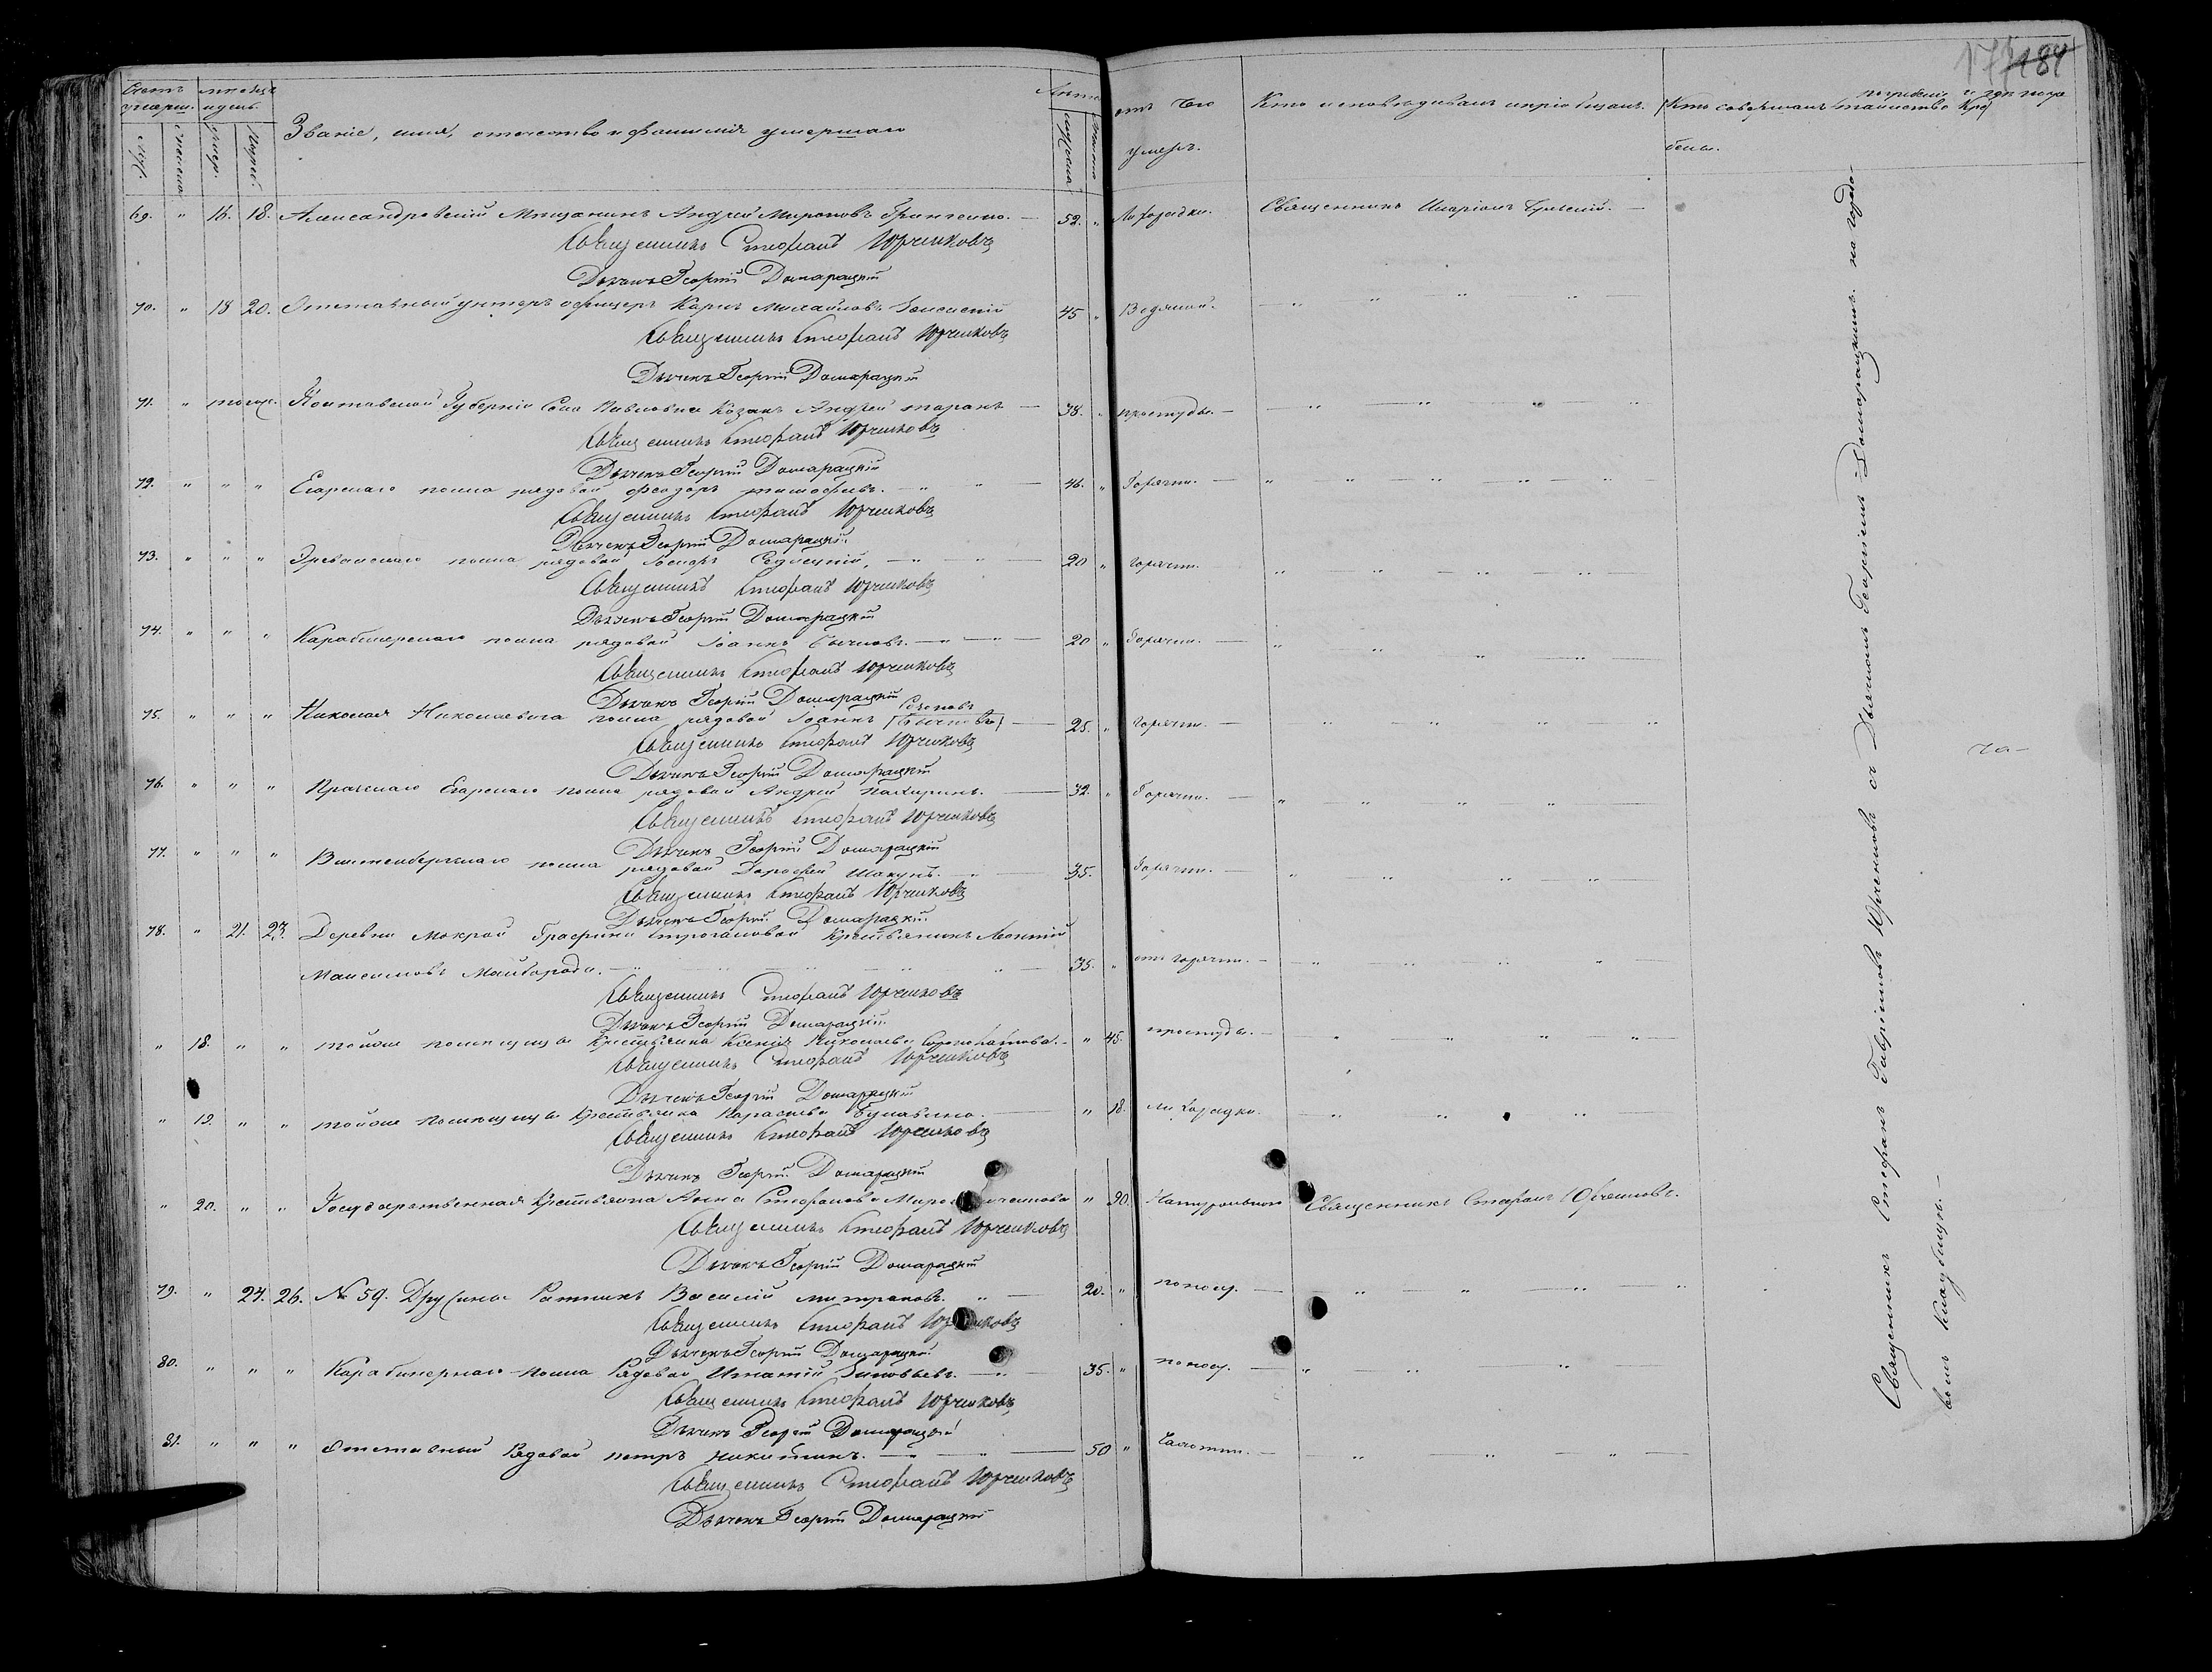 177 184
Счетъ умерш. мѣсяцъ и день. Званіе, имя, отечество и фамилія умершаго Лѣта отъ чего умеръ. Кто исповѣдывалъ и пріобщалъ. Кто совершалъ погребеніе и гдѣ погребены.
муж. женско. умер. погреб. мужска женска
69. " 16. 18. Александровскій Мѣщанинъ Андрей Мироновъ 52. " Лихорадки. Священникъ Иларіонъ
Священникъ Стефанъ Юрченковъ
Дьячекъ Георгій Домарацкій
70. " 18 20. Отставный унтеръ офицеръ Карпъ Михайловъ 45 " Водяной. " " " "
Священникъ Стефанъ Юрченковъ
Дьячекъ Георгій Домарацкій
71. " того же. Полтавской Губерніи Села Павловки Козакъ Андрей таранъ 38. " простуды. " " " "
Священникъ Стефанъ Юрченковъ
Дьячекъ Георгій Домарацкій
72. " " " Егарскаго полка рядовой феодоръ тимофеевъ. 46. " Горячки. " " " " "
Священникъ Стефанъ Юрченковъ
Дьячекъ Георгій Домарацкій
73. " " " полка рядовой Іосифъ Седлецкій. 20 " горячки. " " " "
Священникъ Стефанъ Юрченковъ
Дьячекъ Георгій Домарацкій
74. " " " Карабинернаго полка рядовой Іоаннъ 20 " Горячки. " " " "
Священникъ Стефанъ Юрченковъ
Дьячекъ Георгій Домарацкій
75. " " " Николая Николаевича полка рядовой Іоаннъ 25. " горячки. " " " "
Священникъ Стефанъ Юрченковъ
Дьячекъ Георгій Домарацкій
76. " " " Егарскаго полка рядовой Андрей 32. " Горячки. " " " "
Священникъ Стефанъ Юрченковъ
Дьячекъ Георгій Домарацкій
77. " " " полка рядовой Дорофей Шакунъ. 35. Горячки. " " " "
Священникъ Стефанъ Юрченковъ
Дьячекъ Георгій Домарацкій
78. " 21. 23. Деревни Мокрой Графини Строгановой Крестьянинъ Леонтій
Максимовъ Майборода. 35. " отъ горячки. " " " "
Священникъ Стефанъ Юрченковъ
Дьячекъ Георгій Домарацкій
" 18. " " тойже помѣщицы Крестьянка Ксенія " 45. простуды. " " " "
Священникъ Стефанъ Юрченковъ
Дьячекъ Георгій Домарацкій
" 19. " " тойже помѣщицы Крестьянка " 18. лихорадки. " " " "
Священникъ Стефанъ Юрченковъ
Дьячекъ Георгій Домарацкій
" 20. " " Государственная Крестьянка Анна Стефанова " 90. Натуральною Священникъ Стефанъ Юрченковъ.
Священникъ Стефанъ Юрченковъ
Дьячекъ Георгій Домарацкій
79. " 24. 26. № 59. Дружины Ратникъ Василій митрановъ. 20. " поносу. " " " "
Священникъ Стефанъ Юрченковъ
Дьячекъ Георгій Домарацкій
80. " " " Карабинернаго полка Рядовой Игнатій Зиновьевъ. 35. " поносу. " " "
Священникъ Стефанъ Юрченковъ
Дьячекъ Георгій Домарацкій
81. " " " Отставный Рядовой петръ никитинъ. 50 " Чахотки. " " " "
Священникъ Стефанъ Юрченковъ
Дьячекъ Георгій Домарацкій
Священникъ Стефанъ Гавріиловъ Юрченковъ съ Дьячкомъ Георгіемъ Домарацкимъ. на городо-
вомъ кладбищѣ.